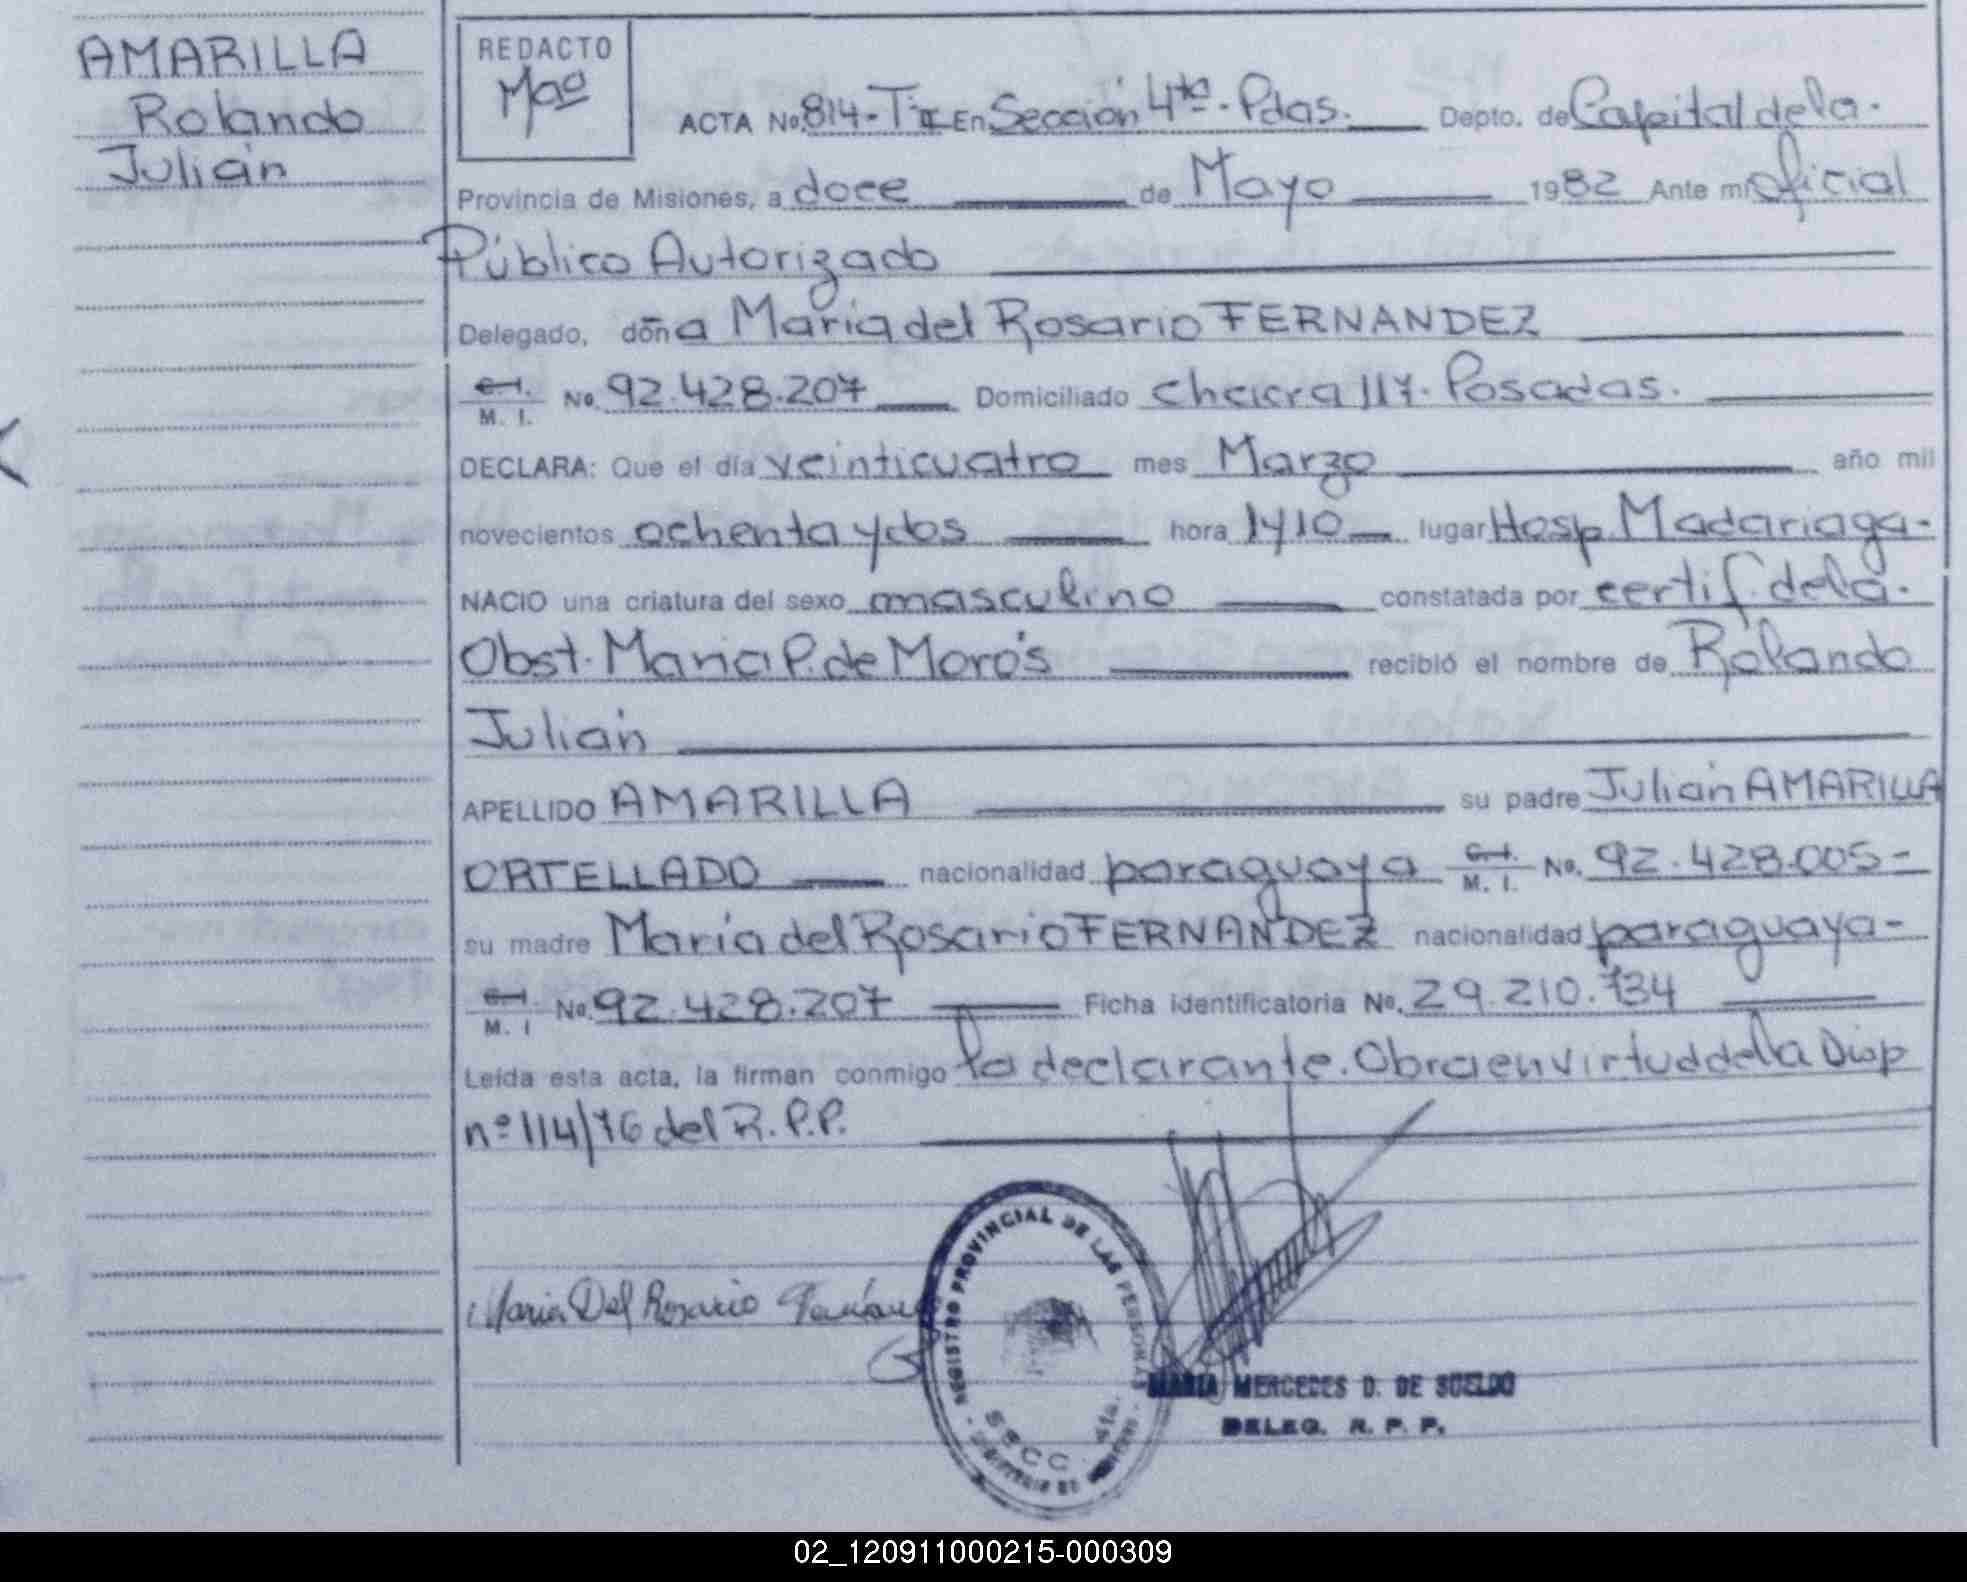 AMARILLA
Rolando
Julián
REDACTO
Mao
ACTA No. 814-T II En Sección 4ta. Pdas. Depto. de Capital de la.
Provincia de Misiones, a doce de Mayo 1982 Ante mi oficial
Público Autorizado
Delegado, doña María del Rosario FERNANDEZ
C.I. M. I. No. 92.428.207 Domiciliado chacra 117. Posadas.
DECLARA: Que el día veinticuatro mes Marzo año mil
novecientos ochenta y dos hora 1410 lugar Hosp. Madariaga.
NACIO una criatura del sexo masculino constatada por certif. de la.
Obst. Maria P. de Morós recibió el nombre de Rolando
Julián
APELLIDO AMARILLA su padre Julián AMARILLA
ORTELLADO nacionalidad paraguaya C.I. M. I. No. 92.428.005-
su madre María del Rosario FERNANDEZ nacionalidad paraguaya-
C.I. M. I No. 92.428.207 Ficha identificatoria No. 29.210.734
Leída esta acta, la firman conmigo la declarante. Obra en virtud de la Disp
nº 114/76 del R.P.P.
Maria Del Rosario
REGISTRO PROVINCIAL DE LAS PERSONAS
SECC. 4ta.
MARIA MERCEDES D. DE SUELDO
DELEG. R. P. P.
02_120911000215-000309